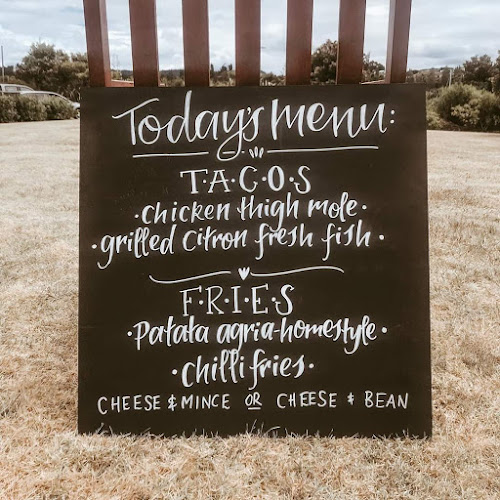 Today's menu:
T·A·C·O·S
·chicken thigh mole·
·grilled citron fresh fish·
F·R·I·E·S
·Patata agria-homestyle·
·chilli fries·
CHEESE & MINCE OR CHEESE & BEAN